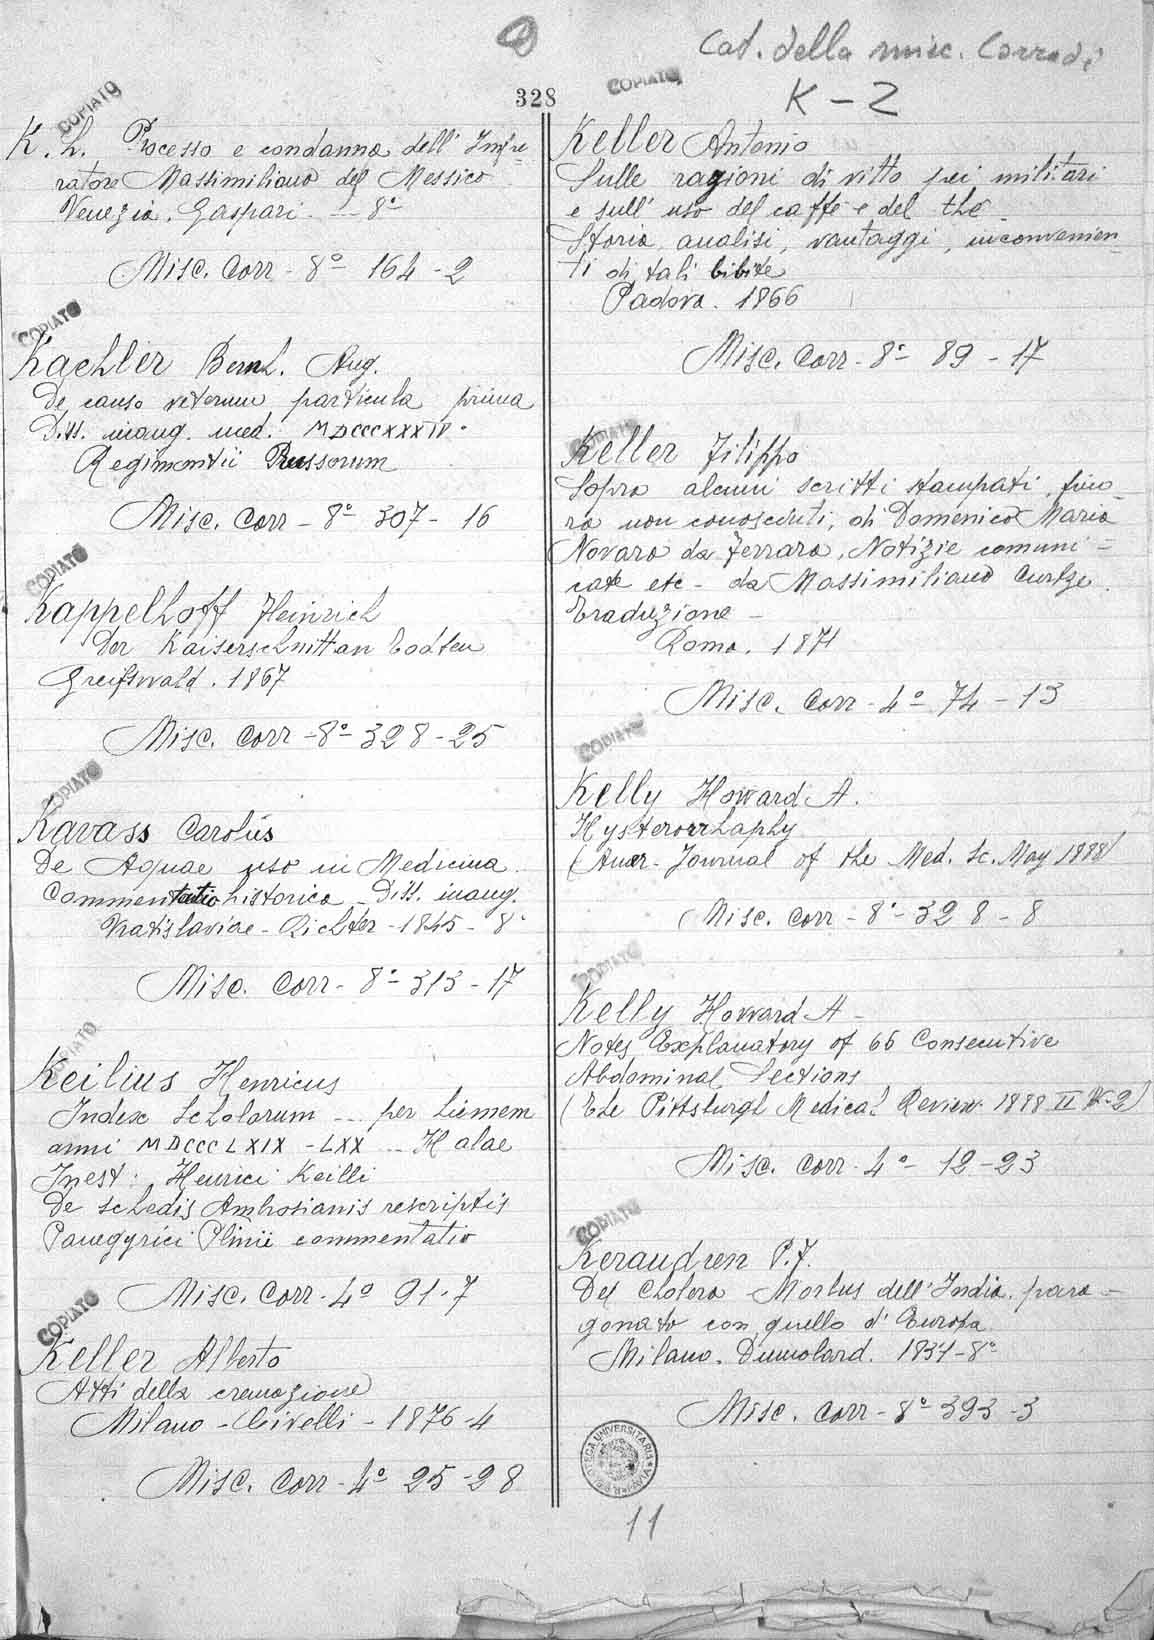 Cat. della misc. Corradi
K-Z
328
COPIATO
K. H. Processo e condanna dell' Impe-
ratore Massimiliano del Messico
Venezia. Gaspari. — 8°
Misc. Corr - 8° 164 - 2
COPIATO
Kaehler Bernh. Aug.
De causo veterum particula prima
Diss. inaug. med. MDCCCXXXIV.
Regimontii Prussorum
Misc. Corr - 8° 307 - 16
COPIATO
Kappelhoff Heinrich
Der Kaiserschnitt an Todten
Greifswald. 1867
Misc. Corr - 8° 328 - 25
COPIATO
Kavass Carolus
De Aquae uso in Medicina
Commentatio historica - Diss. inaug.
Vratislaviae - Richter - 1845 - 8°
Misc. Corr - 8° 313 - 17
COPIATO
Keilius Henricus
Index Scholarum ... per hiemem
anni MDCCCLXIX - LXX ... Halae
Inest: Henrici Keilli
De schedis Ambrosianis rescriptis
Panegyrici Plinii commentatio
Misc. Corr - 4° 91 - 7
COPIATO
Keller Alberto
Atti della cremazione
Milano - Civelli - 1876 - 4
Misc. Corr - 4° 25 - 28
COPIATO
Keller Antonio
Sulle ragioni di vitto pei militari
e sull' uso del caffè e del thè.
Storia, analisi, vantaggi, inconvenien-
ti di tali bibite
Padova. 1866
Misc. Corr - 8° 89 - 17
COPIATO
Keller Filippo
Sopra alcuni scritti stampati, fino-
ra non conosciuti, di Domenico Maria
Novara da Ferrara, Notizie comuni=
cate etc - da Massimiliano Curtze.
Traduzione -
Roma. 1871
Misc. Corr - 4° 74 - 13
COPIATO
Kelly Howard A.
Hysterorrhaphy
(Amer. Journal of the Med. Sc. May 1888)
Misc. Corr - 8° - 328 - 8
COPIATO
Kelly Howard A -
Notes Explanatory of 66 Consecutive
Abdominal Sections
(The Pittsburgh Medical Review 1888 II N. 2)
Misc. Corr - 4° - 12 - 23
COPIATO
Keraudren P. F.
Del Cholera - Morbus dell' India, para-
gonato con quello d' Europa
Milano. Dumolard. 1831 - 8°
Misc. Corr - 8° 393 - 3
BIBLIOTECA UNIVERSITARIA
11